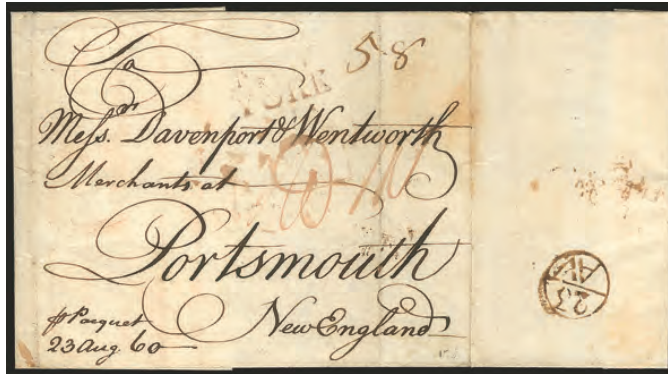 To
58
YORK
Mess.rs Davenport & Wentworth
Merchants at
Portsmouth
New England
p Pacquet
23 Aug. 60
AV
23